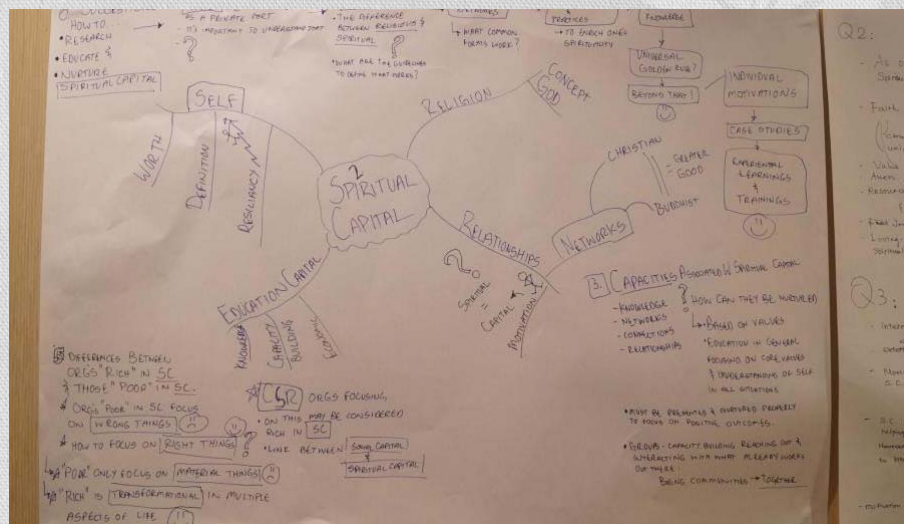 HOW TO...
• RESEARCH
• EDUCATE &
• NURTURE
SPIRITUAL CAPITAL
IS A PRIVATE PART
- IT'S IMPORTANT TO UNDERSTAND
- ?
- THE DIFFERENCE
BETWEEN RELIGIOUS &
SPIRITUAL
?
TO DEFINE WHAT WORKS?
NETWORKS
↳ WHAT COMMON
FORMS WORK?
PRACTICES
→ TO ENRICH ONE'S
SPIRITUALITY
KNOWLEDGE
UNIVERSAL
GOLDEN RULE?
BEYOND THAT!
INDIVIDUAL
MOTIVATIONS
CASE STUDIES
EXPERIENTIAL
LEARNINGS
&
TRAININGS
SELF
WORTH
DEFINITION
RESILIANCY
RELIGION
CONCEPT
GOD
2
SPIRITUAL
CAPITAL
CHRISTIAN
= GREATER
GOOD
BUDDHIST
NETWORKS
RELATIONSHIPS
?
SPIRITUAL
=
CAPITAL
MOTIVATION
EDUCATION CAPITAL
KNOWLEDGE
CAPACITY
BUILDING
ECONOMIC
3. CAPACITIES ASSOCIATED W SPIRITUAL CAPITAL
- KNOWLEDGE
- NETWORKS
- CONNECTIONS
- RELATIONSHIPS
? HOW CAN THEY BE NURTURED
↳ • BASED ON VALUES
• EDUCATION IN GENERAL
FOCUSING ON CORE VALUES
& UNDERSTANDING OF SELF
IN ALL SITUATIONS
• MUST BE PRESENTED & NURTURED PROPERLY
TO FOCUS ON POSITIVE OUTCOMES.
• GROUPS - CAPACITY BUILDING REACHING OUT &
INTERACTING WITH WHAT ALREADY WORKS
OUT THERE
BEING COMMUNITIES → TOGETHER
DIFFERENCES BETWEEN
ORGS "RICH" IN SC
& THOSE "POOR" IN SC.
* ORG'S "POOR" IN SC FOCUS
ON WRONG THINGS
* HOW TO FOCUS ON RIGHT THINGS ?
"POOR" ONLY FOCUS ON MATERIAL THINGS
"RICH" IS TRANSFORMATIONAL IN MULTIPLE
ASPECTS OF LIFE
CSR ORGS FOCUSING,
• ON THIS MAY BE CONSIDERED
RICH IN SC
• LINK BETWEEN SOCIAL CAPITAL
&
SPIRITUAL CAPITAL
Q2:
- Faith
- Value
Q3: